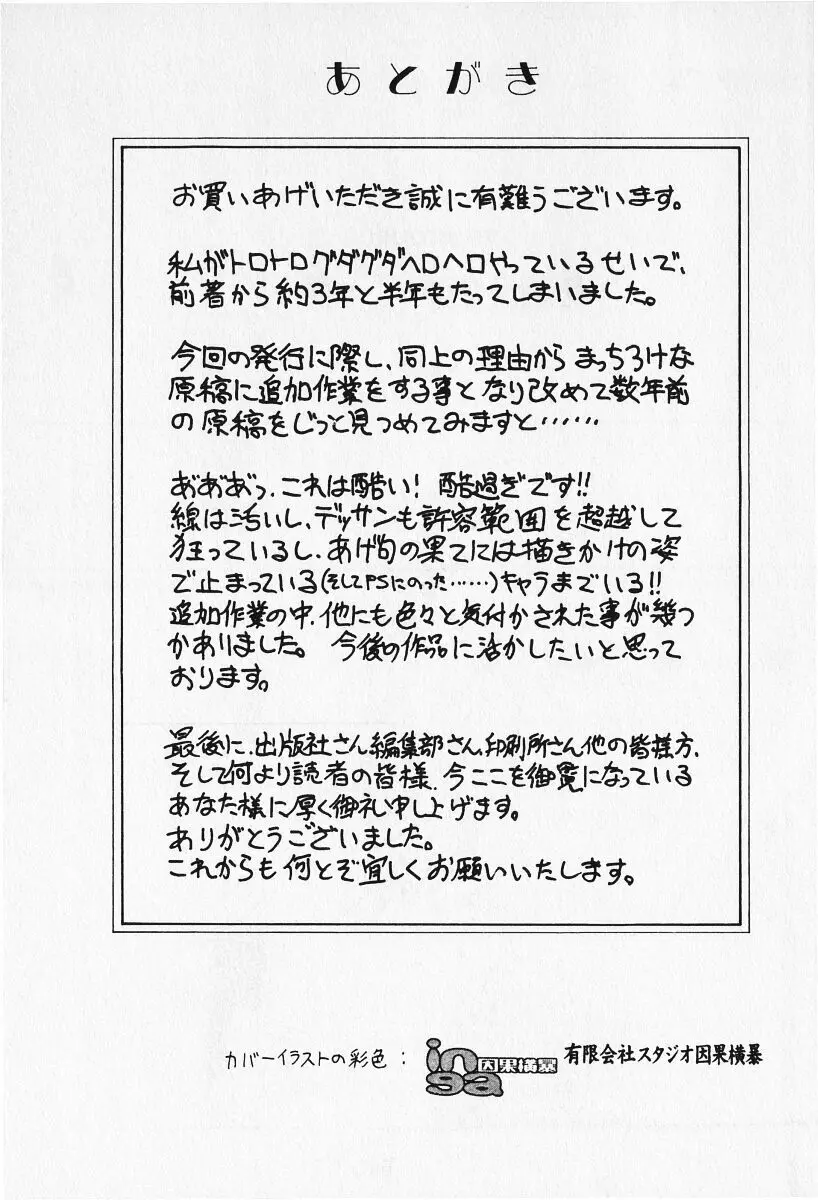 あとがき
お買いあげいただき誠に有難うございます。
私がトロトログダグダヘロヘロやっているせいで、
前著から約3年と半年もたってしまいました。
今回の発行に際し、同上の理由から まっちろけな
原稿に追加作業をする事となり改めて数年前
の原稿をじっと見つめてみますと……
あ゛あ゛あ゛っ、これは酷い! 酷過ぎです!!
線は汚いし、デッサンも許容範囲を超越して
狂っているし、あげ句の果てには描きかけの姿
で止まっている(そしてPSにのった……)キャラまでいる!!
追加作業の中、他にも色々と気付かされた事が幾つ
かありました。 今後の作品に活かしたいと思って
おります。
最後に、出版社さん、編集部さん、印刷所さん他の皆様方、
そして何より読者の皆様、今ここを御覧になっている
あなた様に厚く御礼申し上げます。
ありがとうございました。
これからも何とぞ宜しくお願いいたします。
カバーイラストの彩色: inga 因果横暴 有限会社スタジオ因果横暴